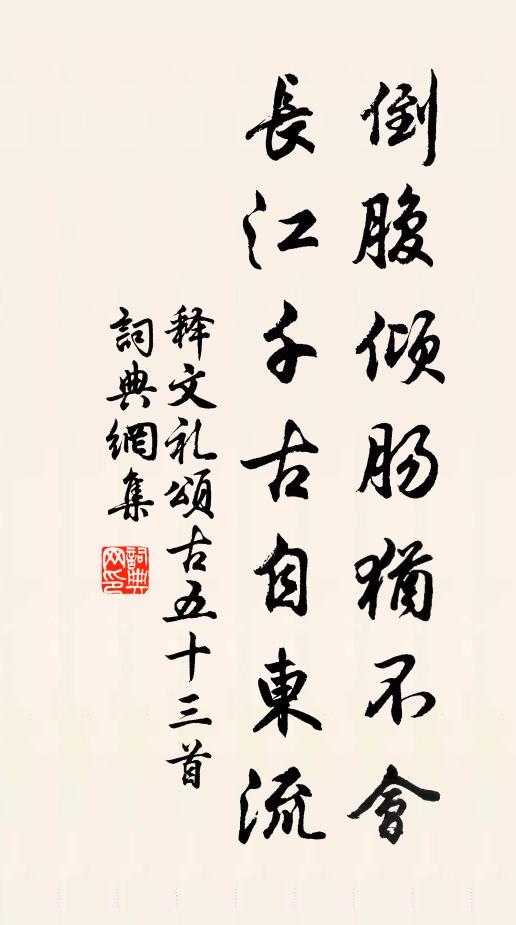 倒腹傾肠猶不會
長江千古自東流
释文礼頌古五十三首
詞典網集
詞典网印